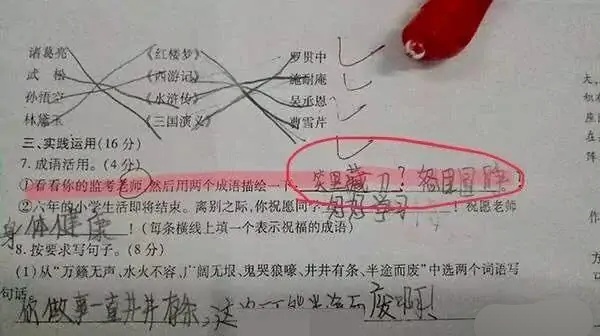 诸葛亮 《红楼梦》 罗贯中
武松 《西游记》 施耐庵
孙悟空 《水浒传》 吴承恩
林黛玉 《三国演义》 曹雪芹
三、实践运用(16分)
7. 成语活用。(4分)
①看看你的监考老师,然后用两个成语描绘一下: 笑里藏刀?
②六年的小学生活即将结束。离别之际,你祝愿同学 好好学习 !祝愿老师
身体健康 !(每条横线上填一个表示祝福的成语)
8. 按要求写句子。(8分)
(1)从“万籁无声、水火不容、广阔无垠、鬼哭狼嚎、井井有条、半途而废”中选两个词语写
句话
你做事一直井井有条,这